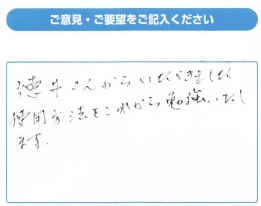 ご意見・ご要望をご記入ください
徳井さんからいただきました
使用方法をこれから勉強いたし
ます.